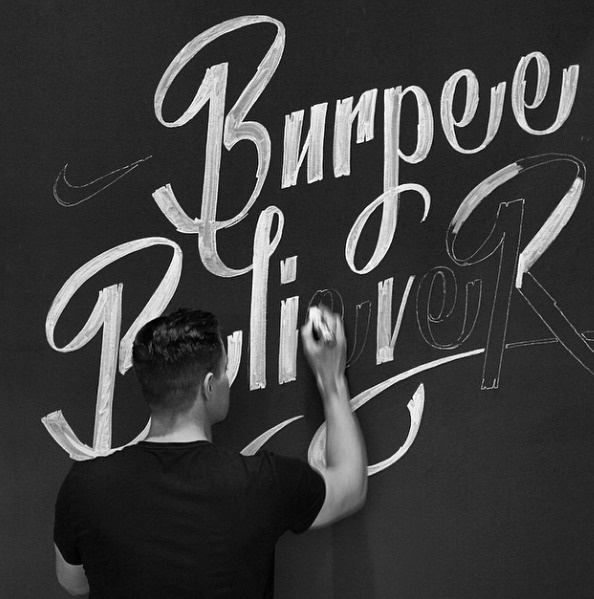 Burpee
BelieveR